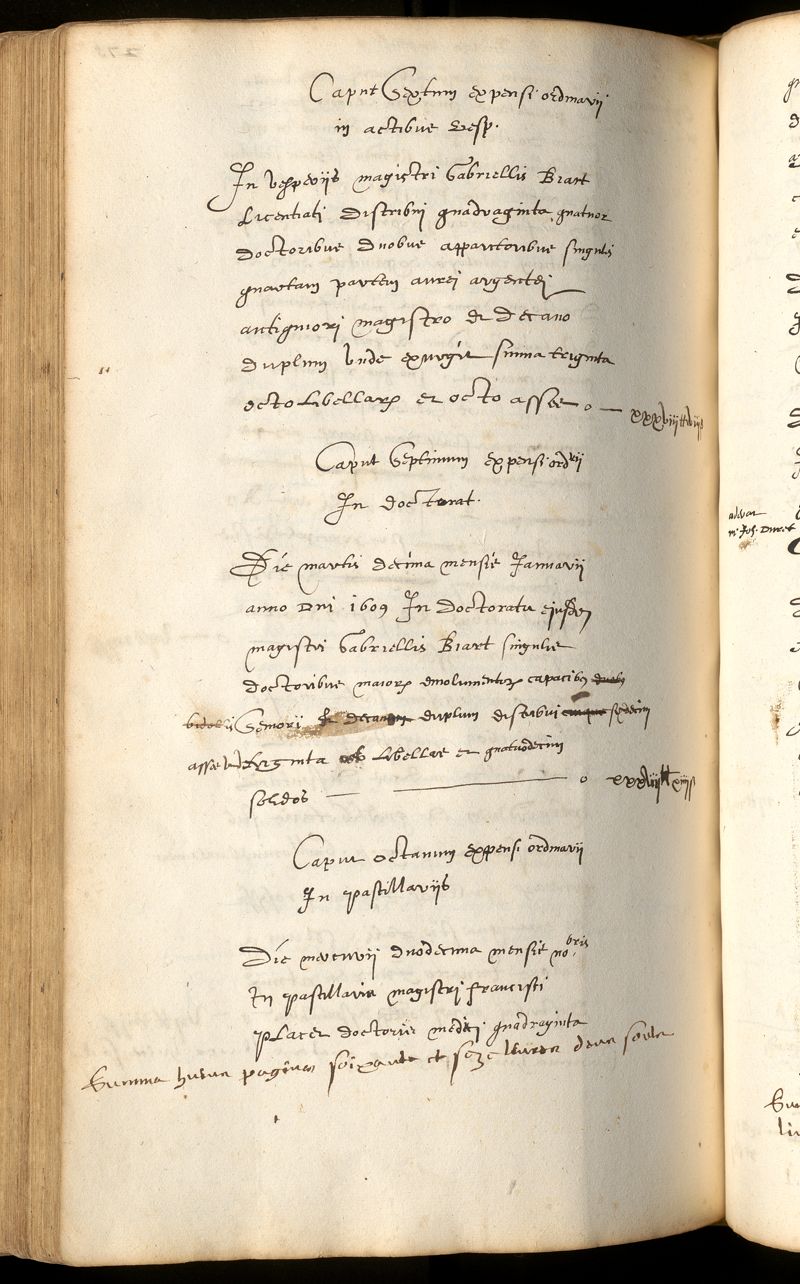 Caput Sextum expensi ordinarii
in actibus vesp.
In vesperiis magistri Gabriellis Biart
Licentiati distribui quadraginta quatuor
doctoribus duobus apparitoribus singulis
quartam partem aurei argentei
antiquiori magistro et decano
duplum unde exurgit summa triginta
octo libellarꝝ et octo asses o — xxxviii tt viii s
Caput Septimum expensi ordrii
In doctorat.
Die martis decima mensis Januarii
anno Dni 1609 In doctoratu ejusdem
magistri Gabriellis Biart singulis
doctoribus maiorꝝ emolumentorꝝ capacibus
Seniori et decano duplum distribui sexdecim
asses triginta libellas et quatuordecim
solidos — — o xxxvii tt xiiii s
Caput octauum expensi ordinarii
In pastillariis
Die mercurii duodecima mensis nobris
In pastillaria magistri francisci
placet doctoris medici quadraginta
Summa huius paginæ soixante et seze liures deux soulz
275